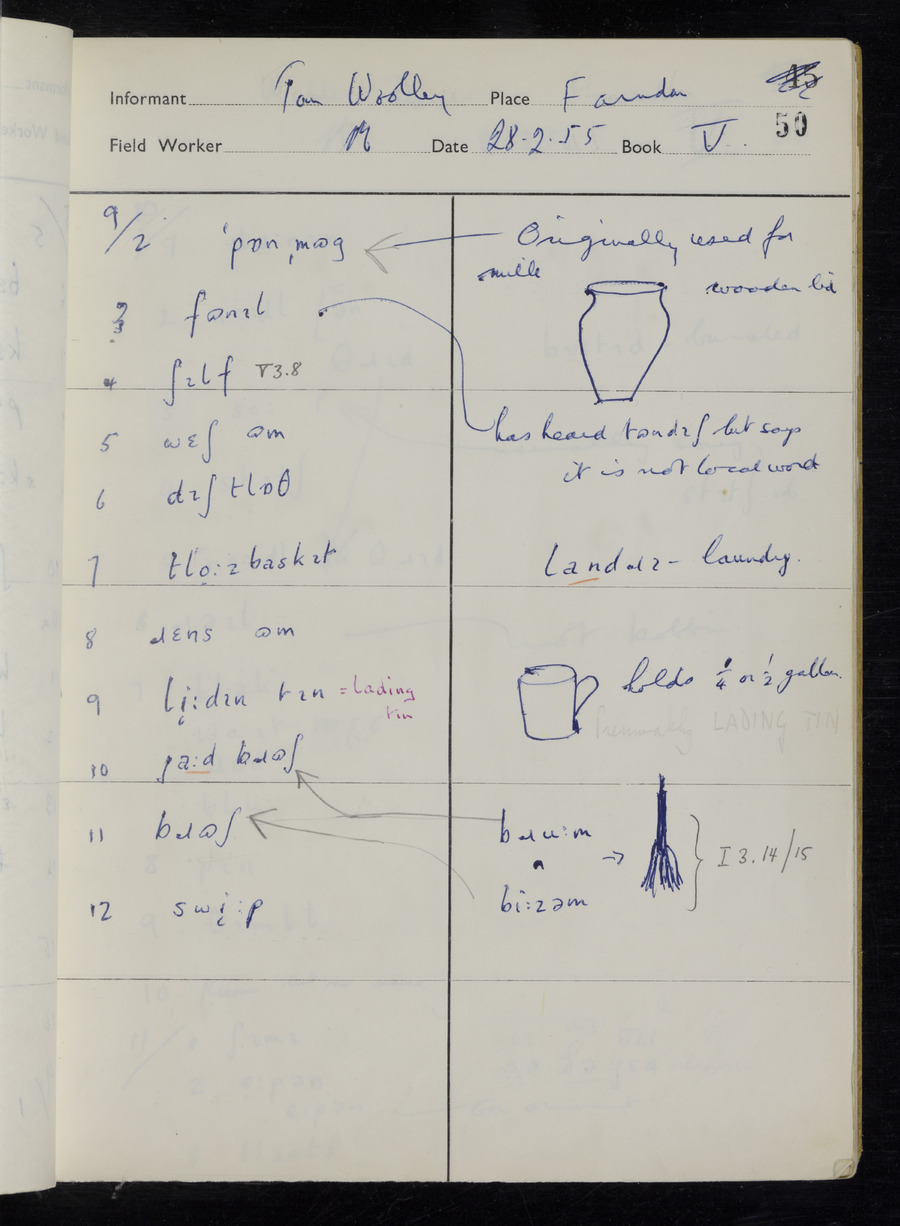 Informant Tom Woolley Place Farndon
50
Field Worker Date 28.2.55 Book V.
9/2 ˈpɒnˌmʊg
Originally used for
milk
wooden lid
3 fʊnɪl
4 ʃɪlf V3.8
has heard tʊndɪʃ but says
it is not local word
5 wɛʃ əm
6 dɪʃ tlɒθ
7 tlo̜:zbaskɪt
landəɹɪ - laundry.
8 ɹɛns əm
9 li̜:dɪn tɪn = lading
tin
holds ¼ or ½ gallon.
LADING TIN
10 ja:d bɹʊʃ
11 bɹʊʃ
bɹu:m
→ I 3.14/15
bi:zəm
12 swi̜:p